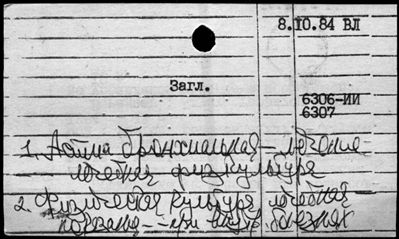 8.10.84 ВЛ
Загл.
6306-ИИ
6307
1. Астма бронхиальная – лечение
лечебная физкультура
2. Физическая культура лечебная
– при внутр. болезнях